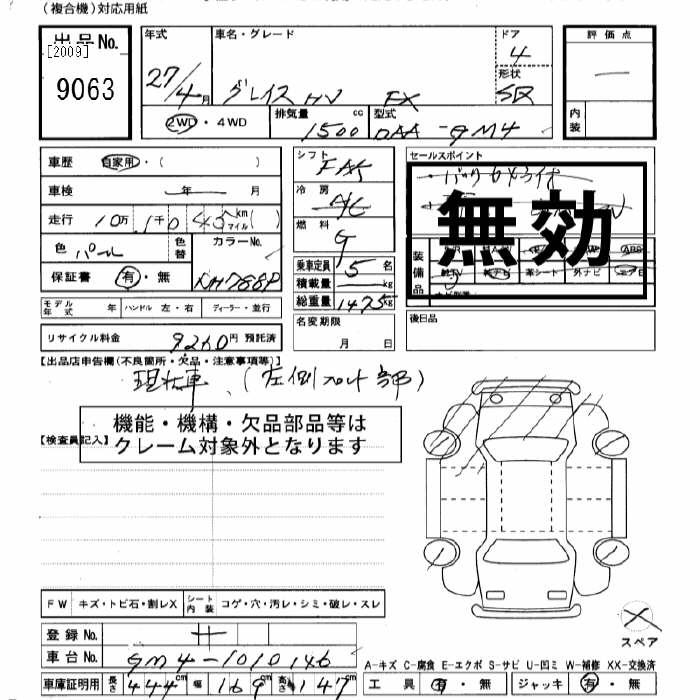 （複合機）対応用紙
出品No.
[2009]
9063
年式
27/4月
車名・グレード
グレイス HV EX
ドア
4
形状
SD
評価点
―
内装
2WD・4WD
排気量 1500 cc
型式 DAA-GM4
車歴 自家用・（ ）
車検 年 月
走行 10万 1千 043 km マイル（ ）
色 パール
色替
カラーNo.
NH788P
保証書 有・無
シフト FAT
冷房 A/C
燃料 G
乗車定員 5名
積載量 kg
総重量 1475 kg
セールスポイント
・バックカメラ付
無効
装備品
革シート 外ナビ
モデル年式 年 ハンドル 左・右 ディーラー・並行
リサイクル料金 9260円 預託済
名変期限
月 日
後日品
【出品店申告欄（不良箇所・欠品・注意事項等）】
現状車、（左側フロント部）
機能・機構・欠品部品等は
クレーム対象外となります
【検査員記入】
FW キズ・トビ石・割レX
シート内装 コゲ・穴・汚レ・シミ・破レ・スレ
登録No.
車台No. GM4-1010146
車庫証明用 長さ 444cm 幅 169cm 高さ 147cm
スペア
A-キズ C-腐食 E-エクボ S-サビ U-凹ミ W-補修 XX-交換済
工具 有・無 ジャッキ 有・無